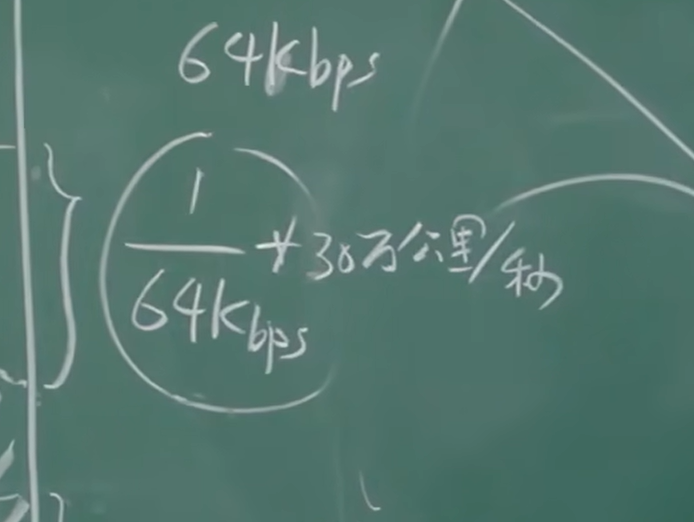 64Kbps
1
64Kbps * 30万公里/秒